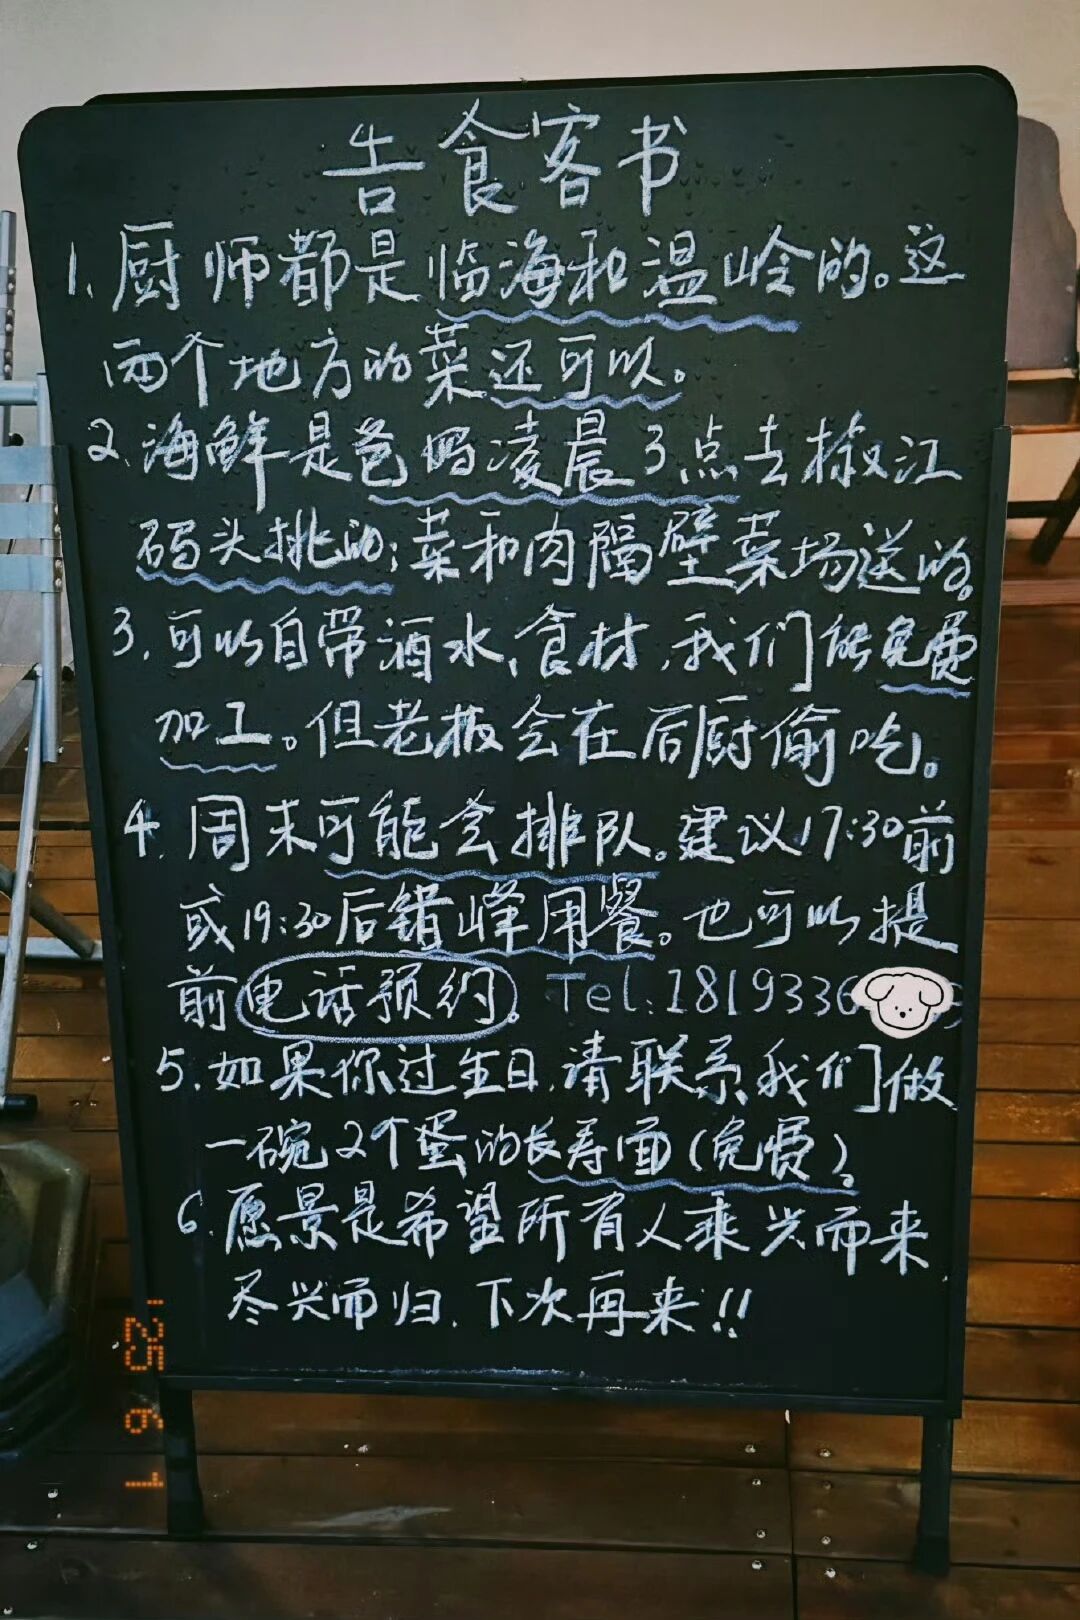 告食客书
1. 厨师都是临海和温岭的。这
两个地方的菜还可以。
2. 海鲜是爸妈凌晨3点去椒江
码头挑的;菜和肉隔壁菜场送的。
3. 可以自带酒水、食材,我们能免费
加工。但老板会在后厨偷吃。
4. 周末可能会排队。建议17:30前
或19:30后错峰用餐。也可以提
前电话预约。Tel:1819336
5. 如果你过生日,请联系我们做
一碗2个蛋的长寿面(免费)。
6. 愿景是希望所有人乘兴而来
尽兴而归,下次再来!!
'25 9 1